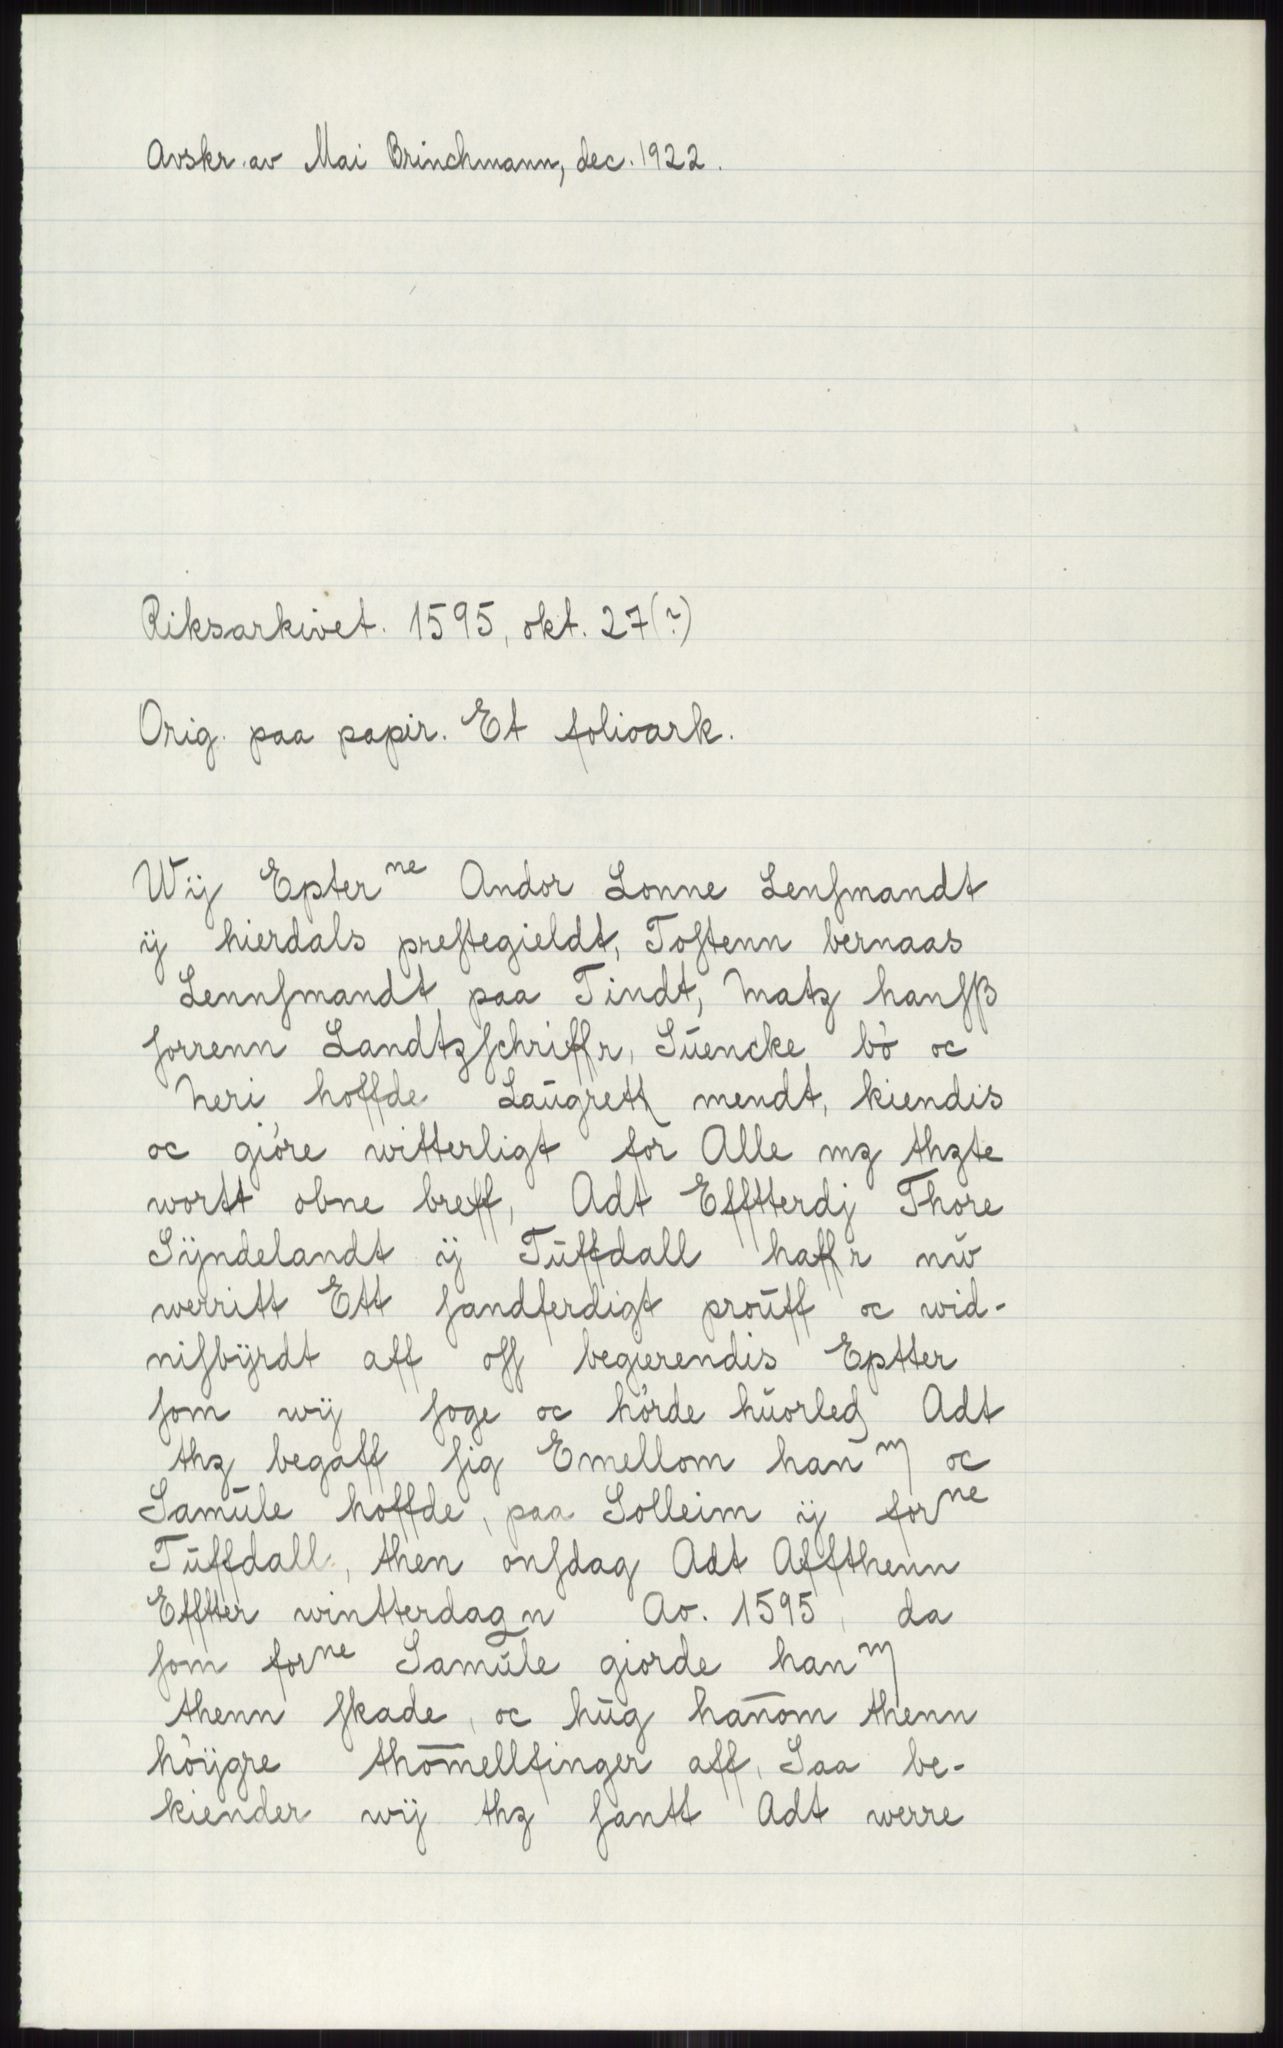 Avskr. av Mai Brinchmann, dec. 1922.
Riksarkivet. 1595, okt. 27(?)
Orig. paa papir. Et folioark.
Wÿ Epterⁿᵉ Andor Lonne Lenſmandt
ÿ hierdals preſtegieldt, Toſtenn bernaas
Lennſmandt paa Tindt, Matz hanſβ
ſorrenn Landtzſchriffr, Sūencke bó oc
Neri hoffde Laūgrett mendt, kiendis
oc gióre witterligt for Alle mz thzte
wortt obne breff, Adt Effterdj Thore
Sÿndelandt ÿ Tūffdall haffr nw
werritt Ett ſandferdigt proūff oc wid-
niſbÿrdt aff oſſ begierendis Eptter
ſom wÿ ſoge oc hórde hūorled Adt
thz begaff ſig Emellom han̄ᵐ oc
Samūle hoffde, paa Solleim ÿ forⁿᵉ
Tūffdall, then onſdag Adt Affthenn
Effter wintterdagn Ao. 1595, da
ſom forⁿᵉ Samūle giorde hanᵐ
thenn ſkade, oc hūg han̄om thenn
hóÿgre thom̄ellfinger aff, Saa be-
kiender wÿ thz ſantt Adt werre